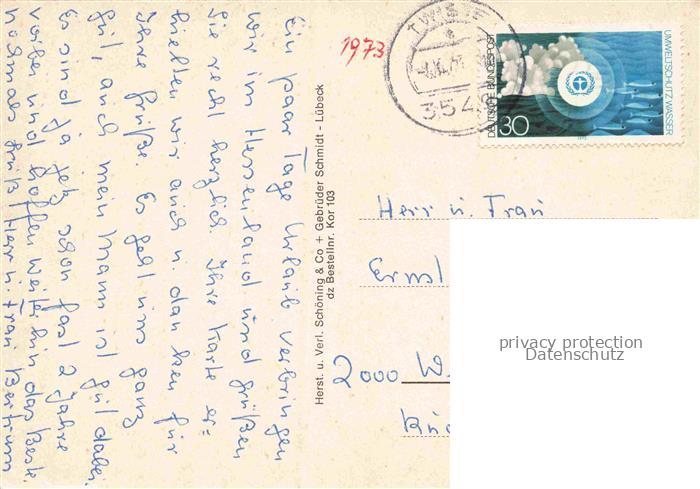 Ein paar Tage Urlaub verbringen
wir im Hessenland und grüßen
Sie recht herzlich. Ihre Karte er=
hielten wir auch u. danken für
Ihre Grüße. Es geht uns ganz
gut, auch mein Mann ist gut dabei.
Es sind ja jetz schon fast 2 Jahre
vorbei und hoffen weiterhin das Beste.
nochmals Gruß Herr u. Frau
Herst. u. Verl. Schöning & Co + Gebrüder Schmidt - Lübeck
dz Bestellnr. Kor 103
1973
TWISTE
354
DEUTSCHE BUNDESPOST
30
UMWELTSCHUTZ WASSER
Herr u. Frau
Ernst
2000 W.
privacy protection
Datenschutz